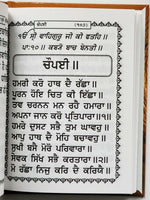 ਚੌਪਈ (੧੦੩)
ੴ ਸ੍ਰੀ ਵਾਹਿਗੁਰੂ ਜੀ ਕੀ ਫਤਹਿ॥
ਪਾ:੧੦॥ ਕਬਯੋ ਬਾਚ ਬੇਨਤੀ॥
ਚੌਪਈ॥
ਹਮਰੀ ਕਰੋ ਹਾਥ ਦੈ ਰੱਛਾ॥
ਪੂਰਨ ਹੋਇ ਚਿਤ ਕੀ ਇੱਛਾ॥
ਤਵ ਚਰਨਨ ਮਨ ਰਹੈ ਹਮਾਰਾ॥
ਅਪਨਾ ਜਾਨ ਕਰੋ ਪ੍ਰਤਿਪਾਰਾ॥੧॥
ਹਮਰੇ ਦੁਸਟ ਸਭੈ ਤੁਮ ਘਾਵਹੁ॥
ਆਪੁ ਹਾਥ ਦੈ ਮੋਹਿ ਬਚਾਵਹੁ॥
ਸੁਖੀ ਬਸੈ ਮੋਰੋ ਪਰਿਵਾਰਾ॥
ਸੇਵਕ ਸਿੱਖ ਸਭੈ ਕਰਤਾਰਾ॥੨॥
ਮੋ ਰੱਛਾ ਨਿਜੁ ਕਰਿ ਦੈ ਕਰਿਯੈ॥